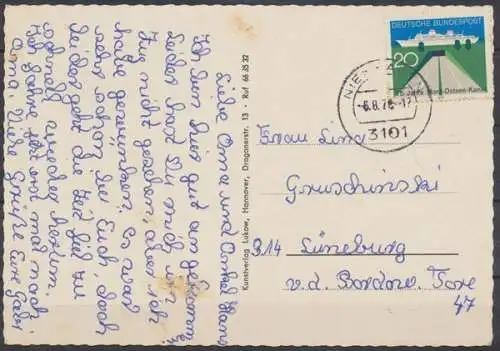 Liebe Oma und Onkel Hans
Ich bin hier gut angekommen,
leider hast Du mich im
Zug nicht gesehen, aber ich
habe gewunken. Es war
sehr schön bei Euch, doch
leider geht die Zeit viel zu
schnell wieder herum.
Ich gehe jetzt erst mal nach
Oma. Viele Grüße Eure Gabi
Kunstverlag Lukow, Hannover, Dragonerstr. 13 · Ruf 66 35 32
DEUTSCHE BUNDESPOST
20
75 Jahre Nord-Ostsee-Kanal
-6.8.70-17
3101
Frau Lina
Gruschinski
314 Lüneburg
v.d. Bardow. Tore
47